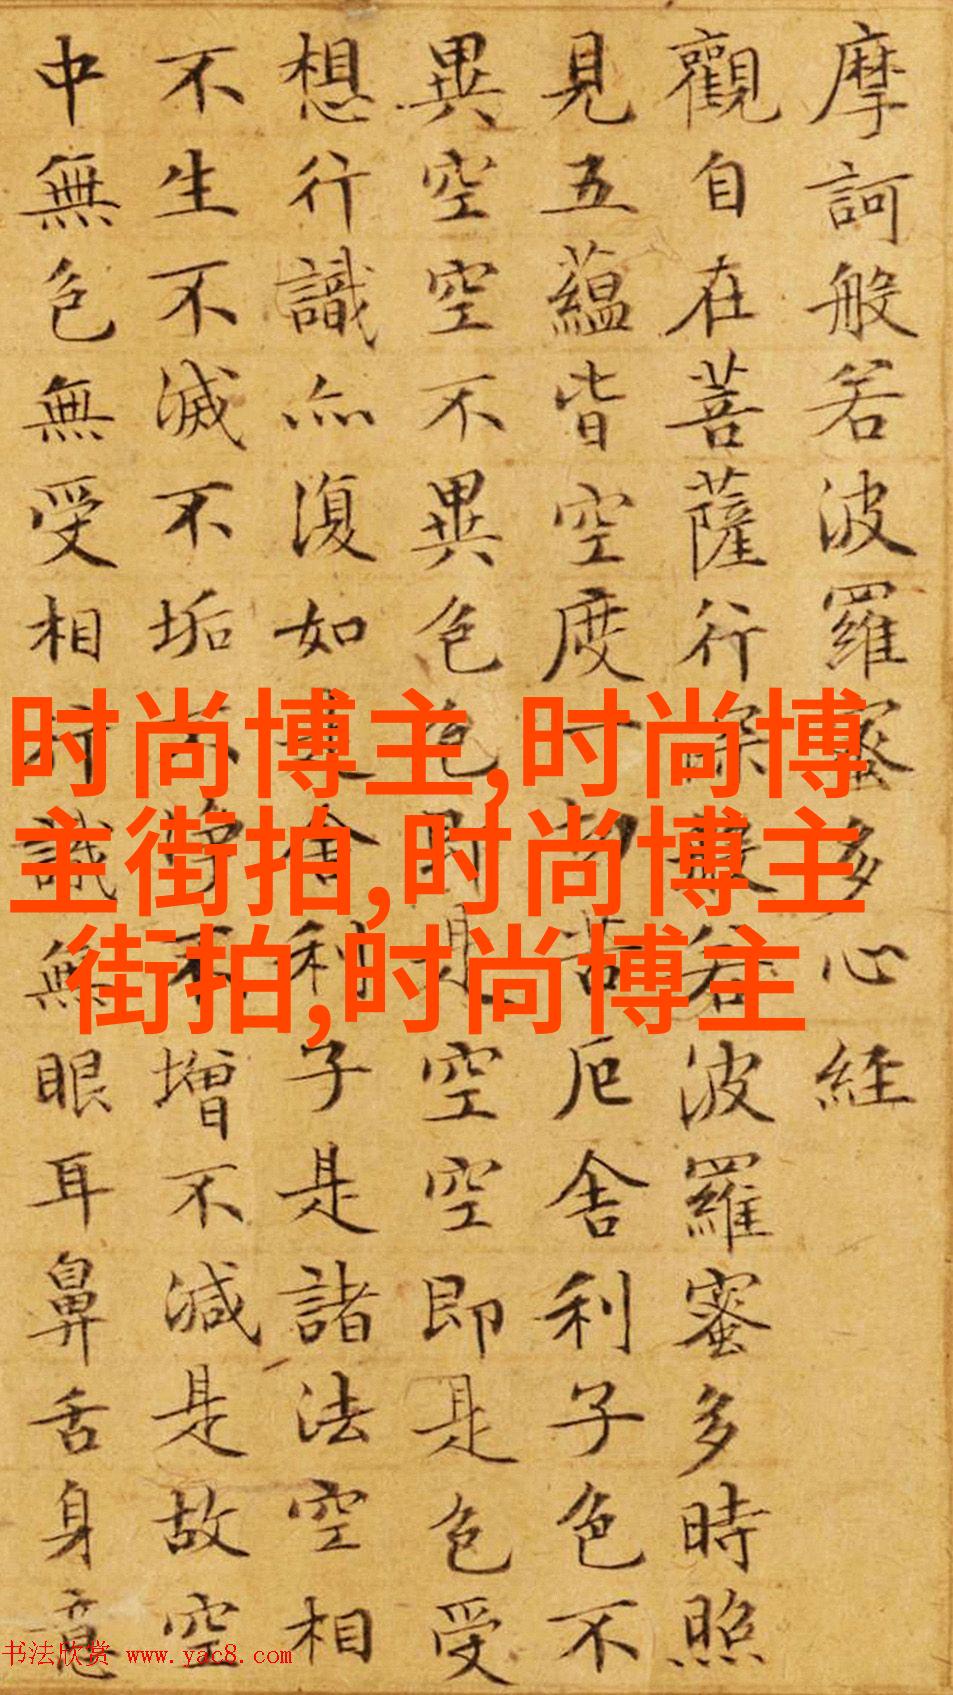 摩訶般若波羅蜜多心經
觀自在菩薩行深般若波羅蜜多時照
見五蘊皆空度一切苦厄舍利子色不
異空空不異色色即是空空即是色受
想行識亦復如是舍利子是諸法空相
不生不滅不垢不淨不增不減是故空
中無色無受相行識無眼耳鼻舌身意
时尚博主,时尚博
主街拍,时尚博主
街拍,时尚博主
书法欣赏 www.yac8.com